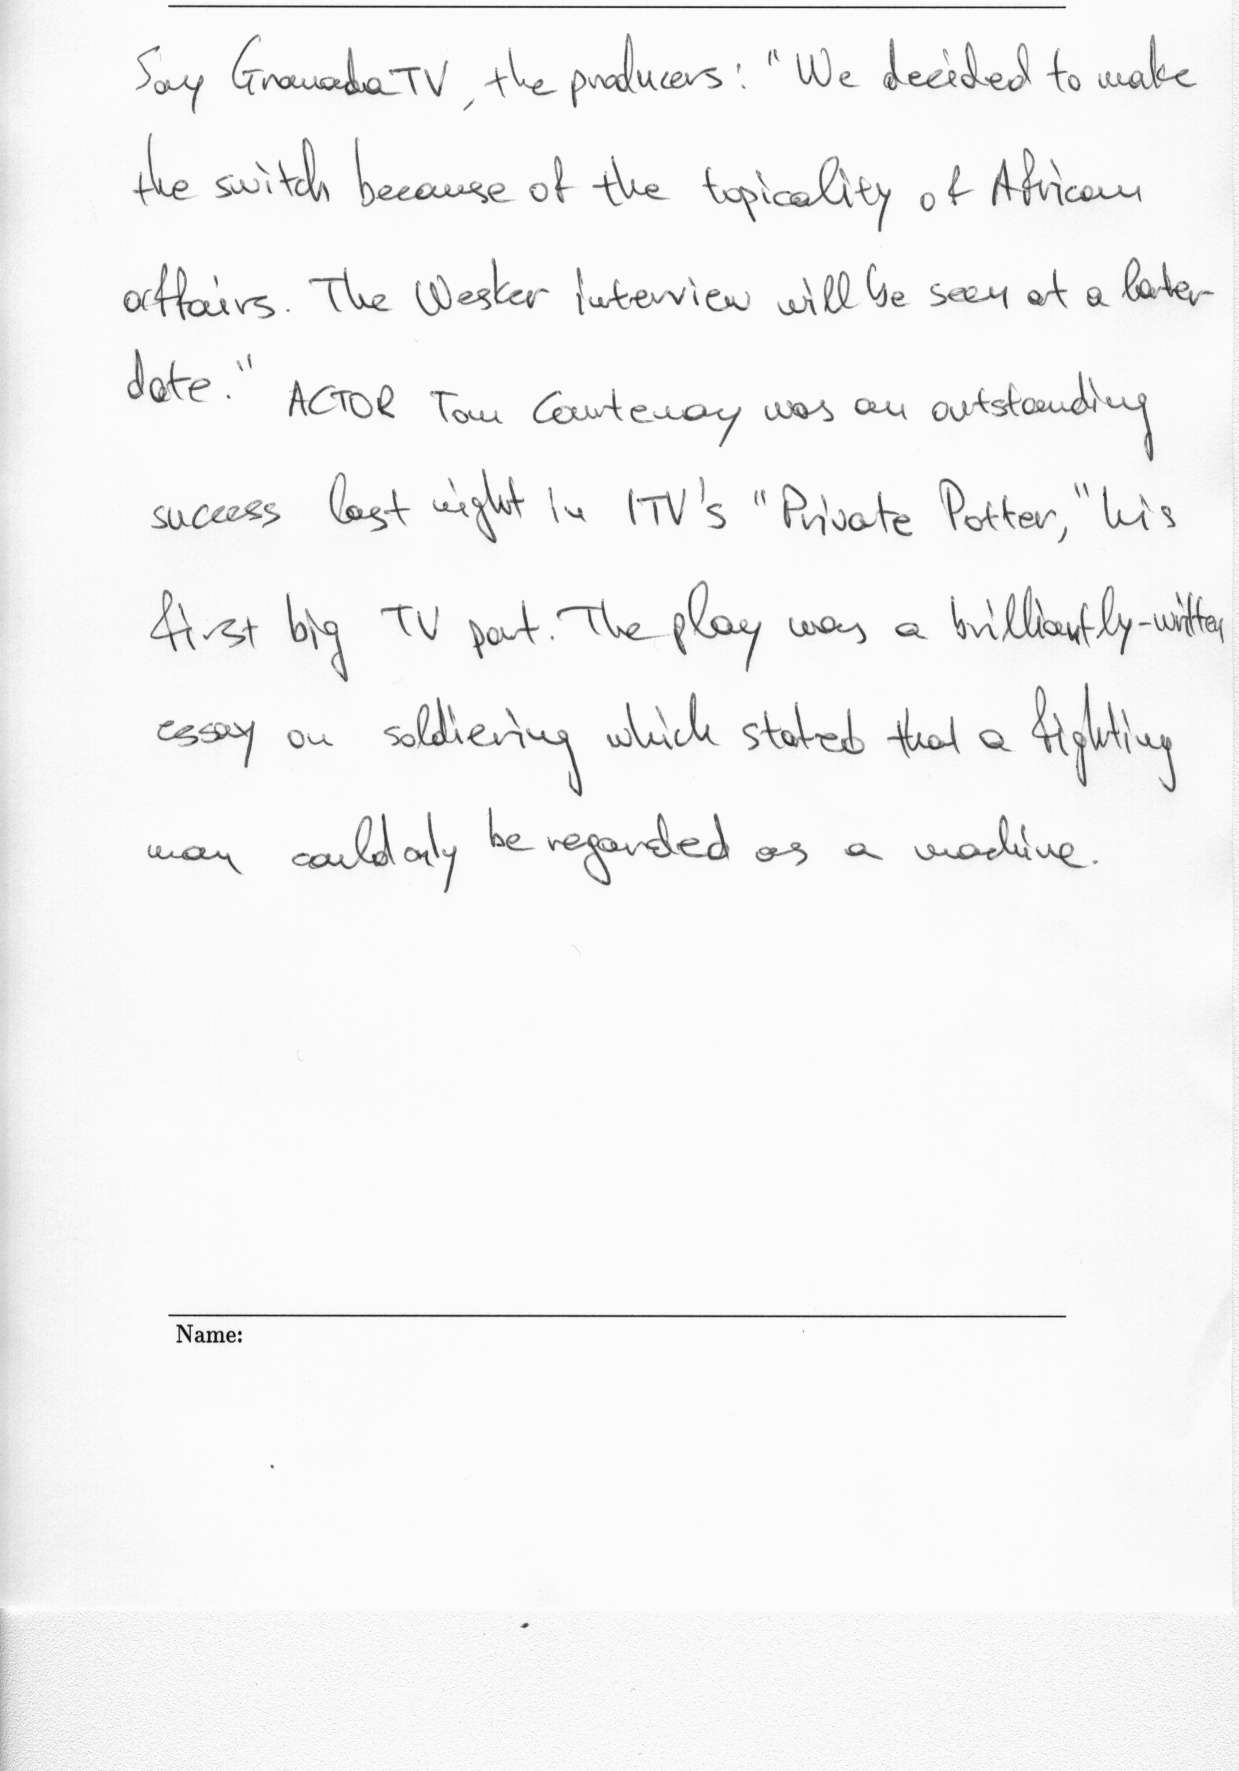 Say Granada TV, the producers: "We decided to make
the switch because of the topicality of African
affairs. The Wesker interview will be seen at a later
date." ACTOR Tom Courtenay was an outstanding
success last night in ITV's "Private Potter," his
first big TV part. The play was a brilliantly-written
essay on soldiering which stated that a fighting
man could only be regarded as a machine.
Name: